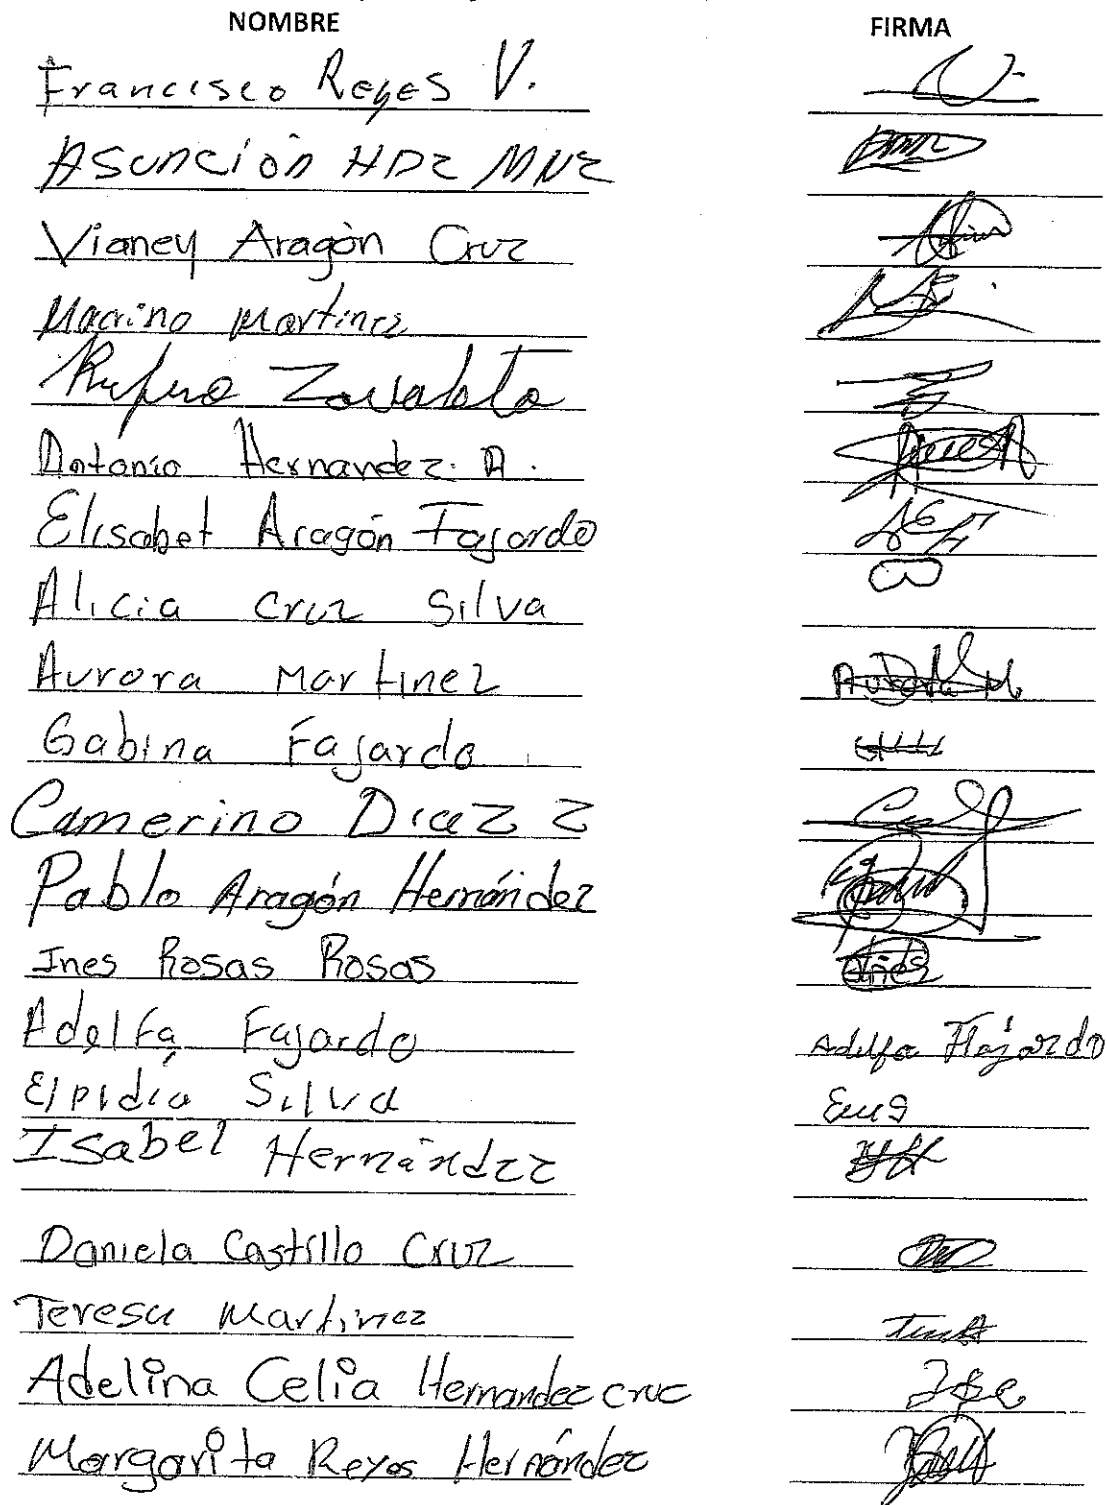 NOMBRE FIRMA
Francisco Reyes V.
Asunción HDZ MNZ
Vianey Aragón Cruz
Macrino Martinez
Rufino Zavaleta
Antonio Hernandez. A.
Elisabet Aragón Fajardo
Alicia cruz Silva
Aurora Martinez Aurora M.
Gabina Fajardo
Camerino Diaz Z
Pablo Aragón Hernández
Ines Rosas Rosas Ines
Adelfa Fajardo Adelfa Fajardo
Elpidia Silva
Isabel Hernández
Daniela Castillo Cruz
Teresa Martinez
Adelina Celia Hernandez cruz
Margarita Reyes Hernández